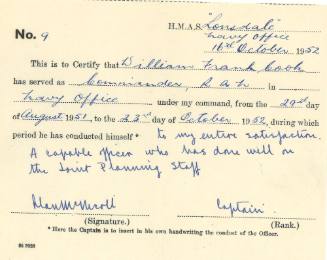 H.M.A.S. "Lonsdale"
Navy Office
No. 9
16th October 1952
This is to Certify that William Frank Cook
has served as Commander, R A N in
Navy Office under my command, from the 29th day
of August 1951, to the 23rd day of October, 1952, during which
period he has conducted himself * to my entire satisfaction.
A capable officer who has done well on
the Joint Planning Staff
Alan McNicoll Captain
(Signature.) (Rank.)
* Here the Captain is to insert in his own handwriting the conduct of the Officer.